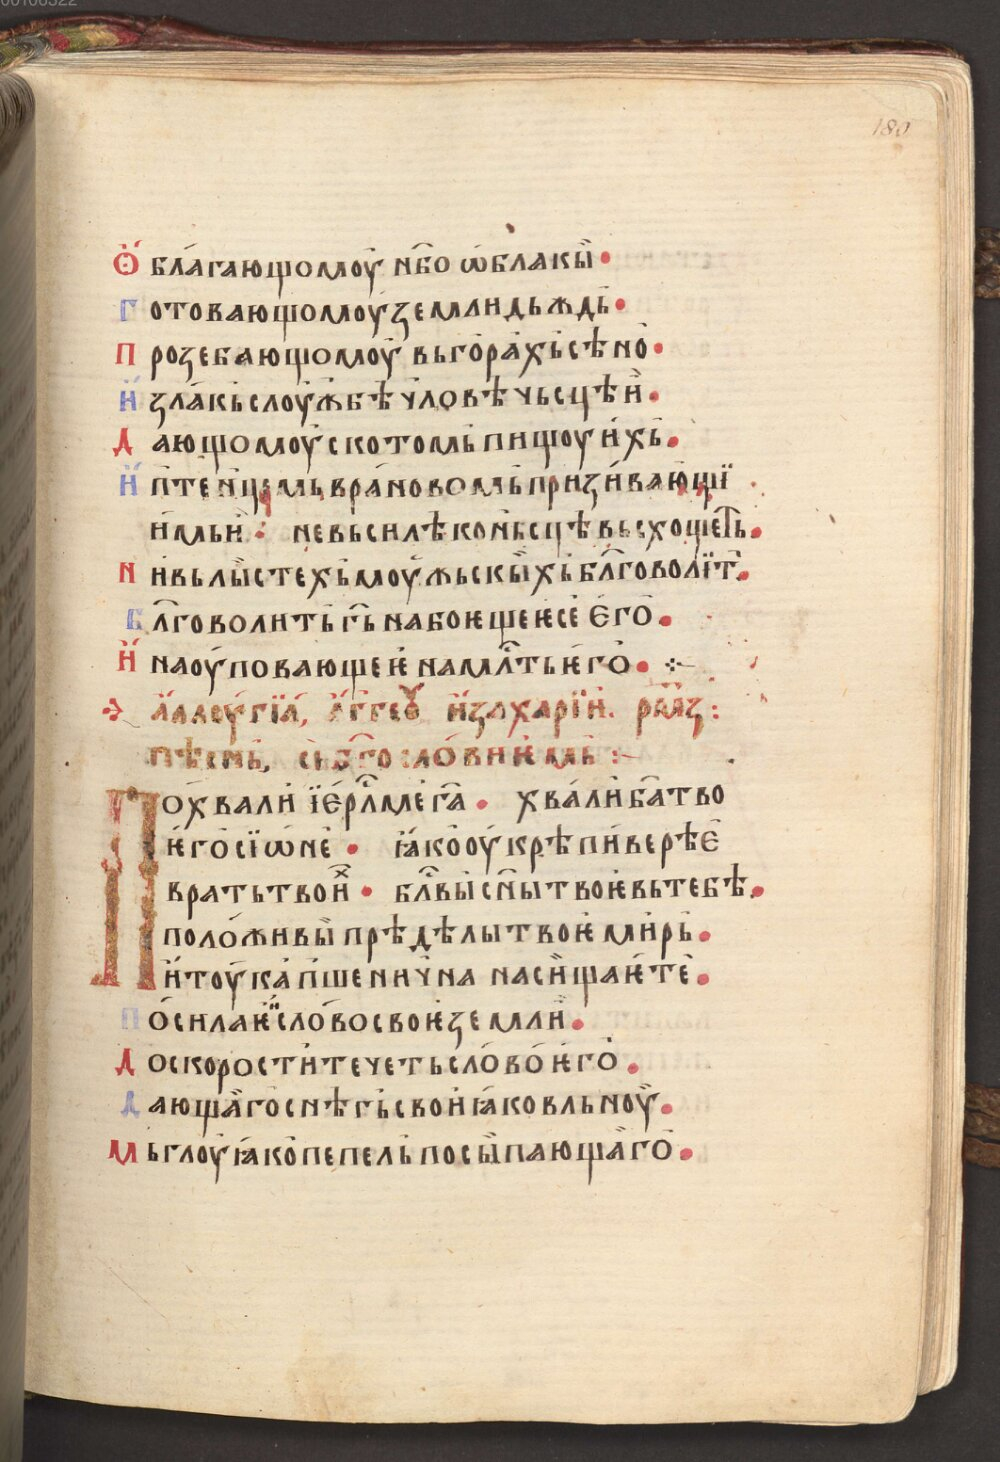 180
Ѻ҆благающомоу нб҃о ѡблакы •
готовающомоу землꙗ дьждь •
прозебающомоу вь горахь сѣно •
И҆ злакь слоужбѣ чловѣчьсцѣи •
дающомоу скотомь пищоу ихь •
И҆ птенцемь врановомь призивающїи
имьи • не вь силѣ коньсцѣ вьсхощеть •
ни вь лыстехь моужьскыхь бл҃говолїт •
бл҃говолить г҃ь на боющеѥ се ѥго •
И҆ на оуповающеѥ на мл҃сть ѥго •
аллеугїа, аггеѡу изахарїи. раз :
пѣснь, сь бг҃ословиѥмь :
Похвали їер҃лме г҃а • хвали б҃а тво
ѥго сїѡне • ꙗко оукрѣпи верѣе
врать твоих • бл҃ви сн҃ы твоѥ вь тебѣ •
положивы прѣдѣлы твоѥ мирь •
и тоука пшенична насищаѥ те •
посилаѥи слово своѥ земли •
до скорости течеть слово ѥго •
дающаго снѣгь свои ꙗко вльноу •
мьглоу ꙗко пепель посыпающаго •